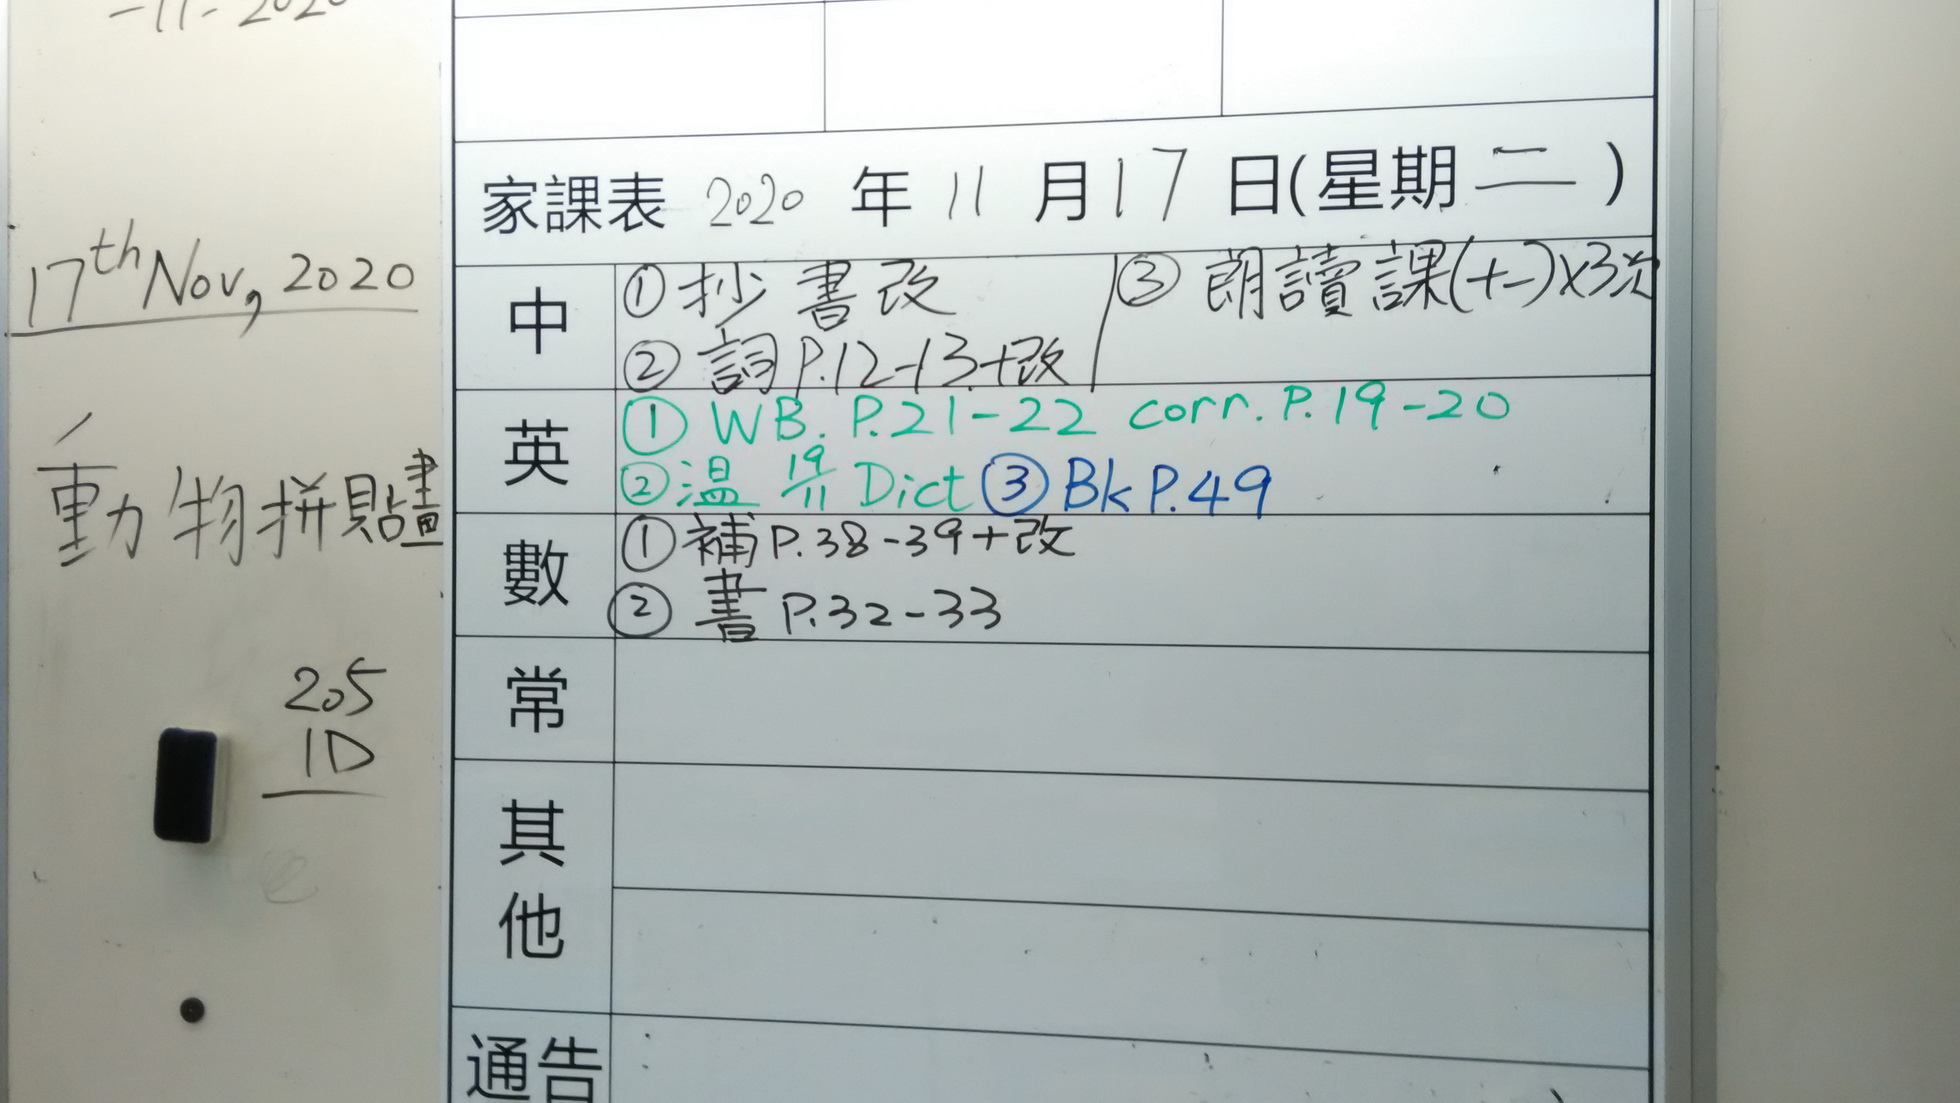 -11-2020
17th Nov, 2020
動物拼貼畫
205
1D
家課表 2020 年 11 月 17 日(星期二)
中 ① 抄書改 ③ 朗讀課(十一)x3次
② 詞P.12-13+改
英 ① WB. P.21-22 corr. P.19-20
② 温 19/11 Dict ③ Bk P.49
數 ① 補P.38-39+改
② 書 P.32-33
常
其他
通告